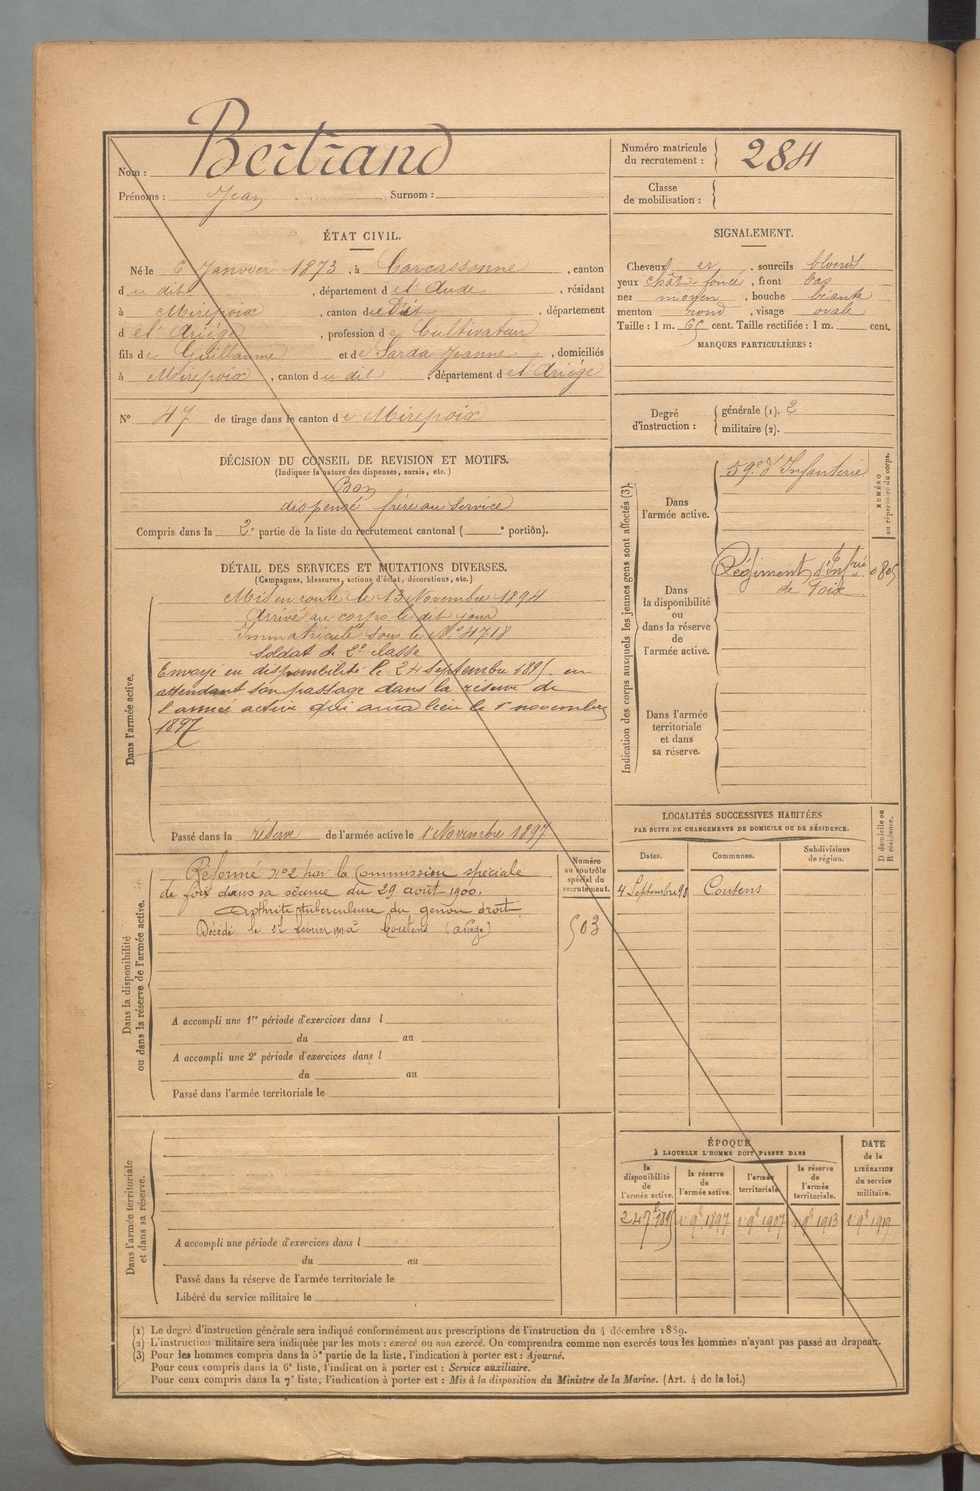 Nom : Bertrand
Prénoms : Jean Surnom :
Numéro matricule du recrutement : 284
Classe de mobilisation :
ÉTAT CIVIL.
Né le 6 Janvier 1873, à Carcassonne, canton
du dit, département de l'Aude, résidant
à Mirepoix, canton du dit, département
de l'Ariège, profession de Cultivateur
fils de Guillaume et de Sarda Jeanne, domiciliés
à Mirepoix, canton du dit, département de l'Ariège
N° 47 de tirage dans le canton de Mirepoix
SIGNALEMENT.
Cheveux et, sourcils blonds
yeux chât. foncé, front bas
nez moyen, bouche béante
menton rond, visage ovale
Taille : 1 m. 65 cent. Taille rectifiée : 1 m. cent.
MARQUES PARTICULIÈRES :
Degré d'instruction :
générale (1). 2
militaire (2).
DÉCISION DU CONSEIL DE REVISION ET MOTIFS.
(Indiquer la nature des dispenses, sursis, etc.)
Bon
dispensé frère au service
Compris dans la 2e partie de la liste du recrutement cantonal ( e portion).
DÉTAIL DES SERVICES ET MUTATIONS DIVERSES.
(Campagnes, blessures, actions d'éclat, décorations, etc.)
Dans l'armée active.
Mis en route le 13 Novembre 1894
Arrivé au corps le dit jour
Immatriculé sous le N° 4718
Soldat de 2e classe
Envoyé en disponibilité le 24 septembre 1895, en
attendant son passage dans la réserve de
l'armée active qui aura lieu le 1er novembre
1897
Passé dans la réserve de l'armée active le 1er Novembre 1897
Indication des corps auxquels les jeunes gens sont affectés (3).
NUMÉRO au répertoire du corps.
Dans l'armée active.
59e d'Infanterie
Dans la disponibilité ou dans la réserve de l'armée active.
Régiment d'Infrie
de Foix
0805
Dans l'armée territoriale et dans sa réserve.
LOCALITÉS SUCCESSIVES HABITÉES
PAR SUITE DE CHANGEMENTS DE DOMICILE OU DE RÉSIDENCE.
Dates. Communes. Subdivisions de région. D domicile ou R résidence.
4 Septembre 98 Coutens
Dans la disponibilité ou dans la réserve de l'armée active.
Numéro au contrôle spécial du recrutement.
503
Réformé N° 2 par la Commission spéciale
de Foix dans sa séance du 29 août 1900.
Arthrite tuberculeuse du genou droit.
Décédé le février à Coutens (Ariège)
A accompli une 1re période d'exercices dans l
du au
A accompli une 2e période d'exercices dans l
du au
Passé dans l'armée territoriale le
Dans l'armée territoriale et dans sa réserve.
A accompli une période d'exercices dans l
du au
Passé dans la réserve de l'armée territoriale le
Libéré du service militaire le
ÉPOQUE
À LAQUELLE L'HOMME DOIT PASSER DANS
la disponibilité de l'armée active.
la réserve de l'armée active.
l'armée territoriale.
la réserve de l'armée territoriale.
DATE de la LIBÉRATION du service militaire.
24 7bre 1895 1er 9bre 1897 1er 9bre 1907 1er 9bre 1913 1er 9bre 1919
(1) Le degré d'instruction générale sera indiqué conformément aux prescriptions de l'instruction du 4 décembre 1889.
(2) L'instruction militaire sera indiquée par les mots : exercé ou non exercé. On comprendra comme non exercés tous les hommes n'ayant pas passé au drapeau.
(3) Pour les hommes compris dans la 5e partie de la liste, l'indication à porter est : Ajourné.
Pour ceux compris dans la 6e liste, l'indication à porter est : Service auxiliaire.
Pour ceux compris dans la 7e liste, l'indication à porter est : Mis à la disposition du Ministre de la Marine. (Art. 4 de la loi.)